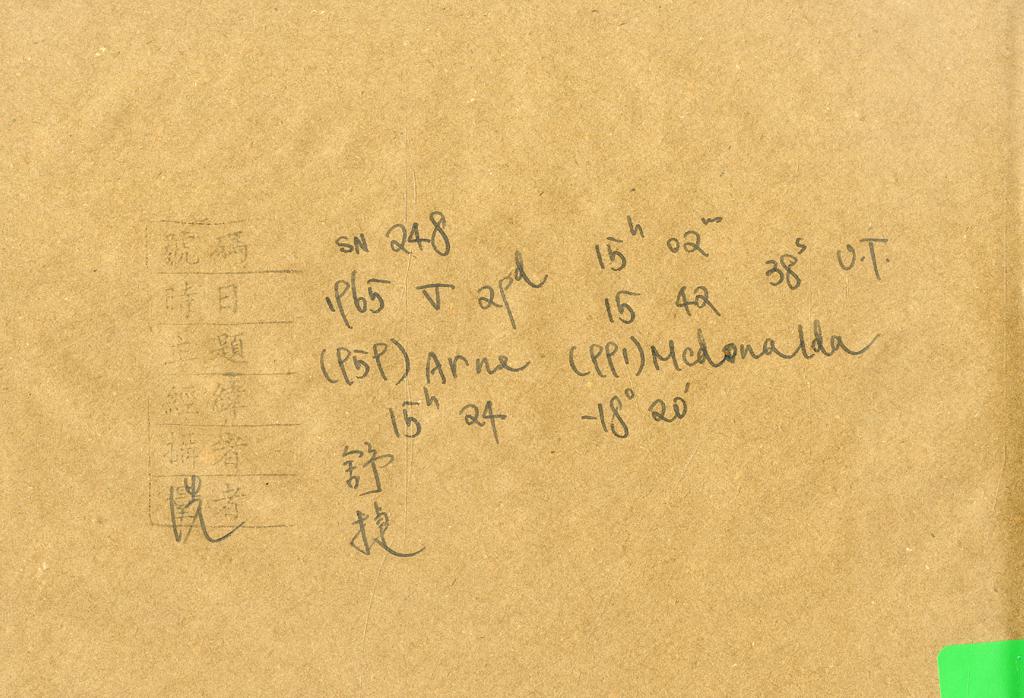 號碼 SN 248
時日 1965 V 29ᵈ 15ʰ 02ᵐ 38ˢ U.T.
15 42
主題 (959) Arne (991) Mcdonalda
經緯 15ʰ 24 -18° 20'
攝者 舒
洗者 捷